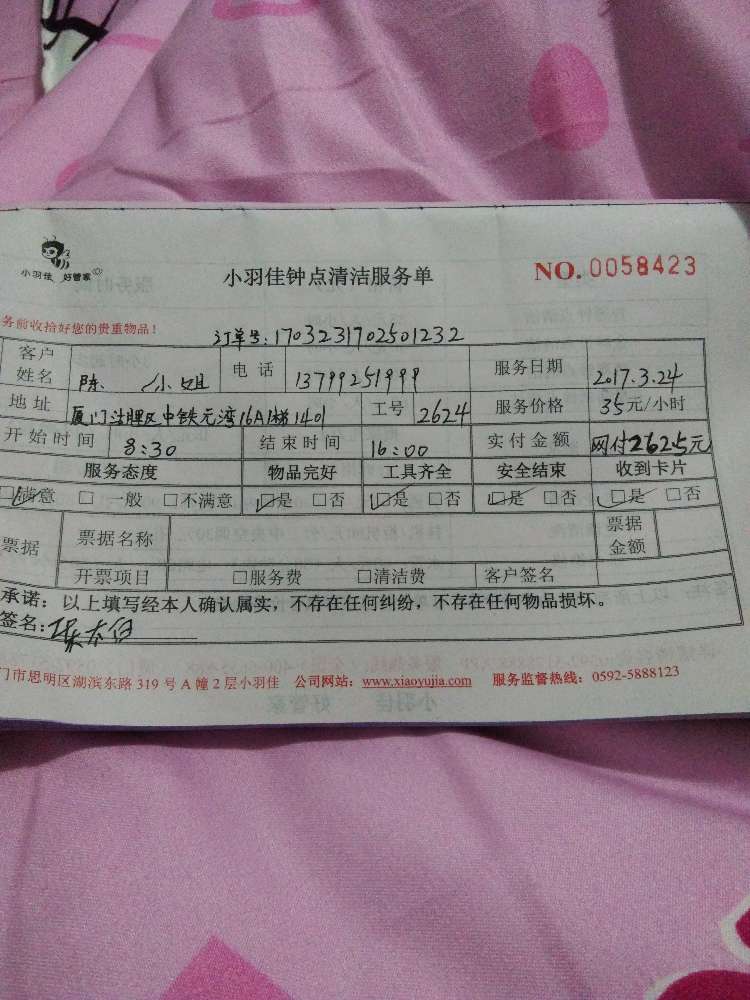 小羽佳 好管家
小羽佳钟点清洁服务单
NO. 0058423
务前收拾好您的贵重物品！
订单号：1703231702501232
客户姓名 陈 小姐 电话 13799251999 服务日期 2017.3.24
地址 厦门 区中铁元湾16A1梯1401 工号 2624 服务价格 35元/小时
开始时间 8:30 结束时间 16:00 实付金额 网付262.5元
服务态度 物品完好 工具齐全 安全结束 收到卡片
☑满意 □一般 □不满意 ☑是 □否 ☑是 □否 ☑是 □否 ☑是 □否
票据 票据名称 票据金额
开票项目 □服务费 □清洁费 客户签名
承诺：以上填写经本人确认属实，不存在任何纠纷，不存在任何物品损坏。
签名：
门市思明区湖滨东路 319 号 A 幢 2 层小羽佳 公司网站：www.xiaoyujia.com 服务监督热线：0592-5888123